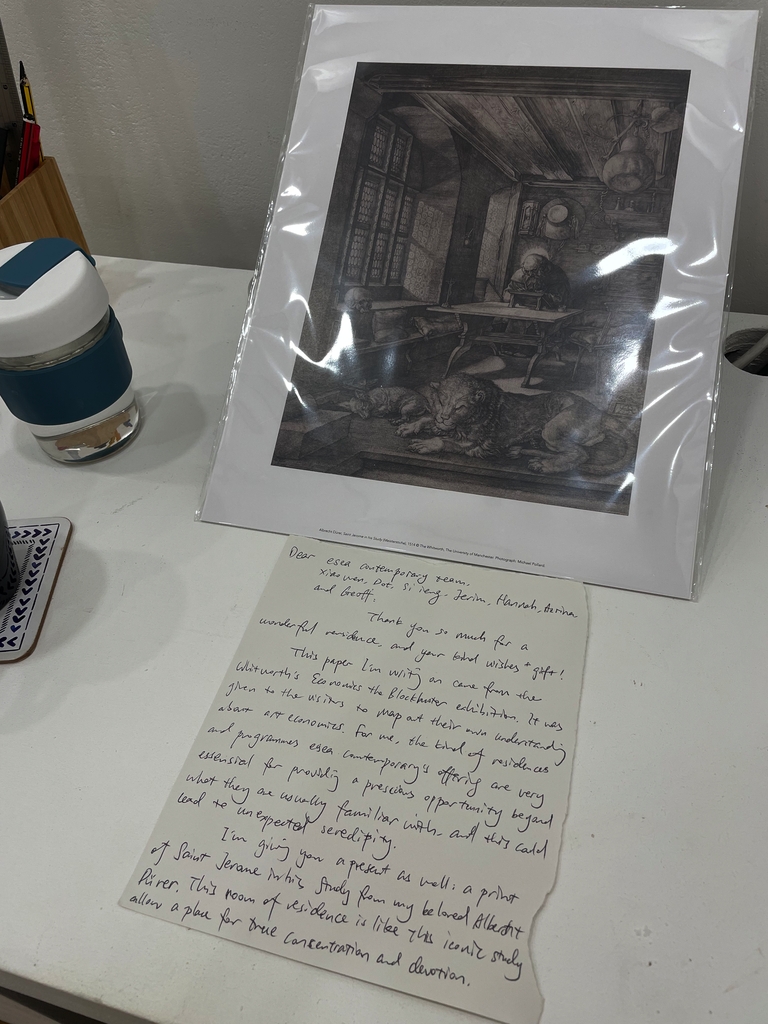 Albrecht Dürer, Saint Jerome in his Study (Hieronymus), 1514 © The Whitworth, The University of Manchester. Photograph: Michael Pollard
Dear esea contemporary team,
Xiaowen, Dot, Si Jerim, Hannah,
and Geoff.
Thank you so much for a
wonderful residence, and your kind wishes + gift!
This paper I'm writing on came from the
Whitworth's Economics the Blockbuster exhibition. It was
given to the visitors to map out their own understanding
about art economics. For me, the kind of residences
and programmes esea contemporary's offering are very
essential for providing a prescious opportunity beyond
what they are usually familiar with, and this could
lead to unexpected seredipity.
I'm giving you a present as well: a print
of Saint Jerome in his Study from my beloved Albecht
Dürer. This room of residence is like this iconic study
allow a place for true concentration and devotion.